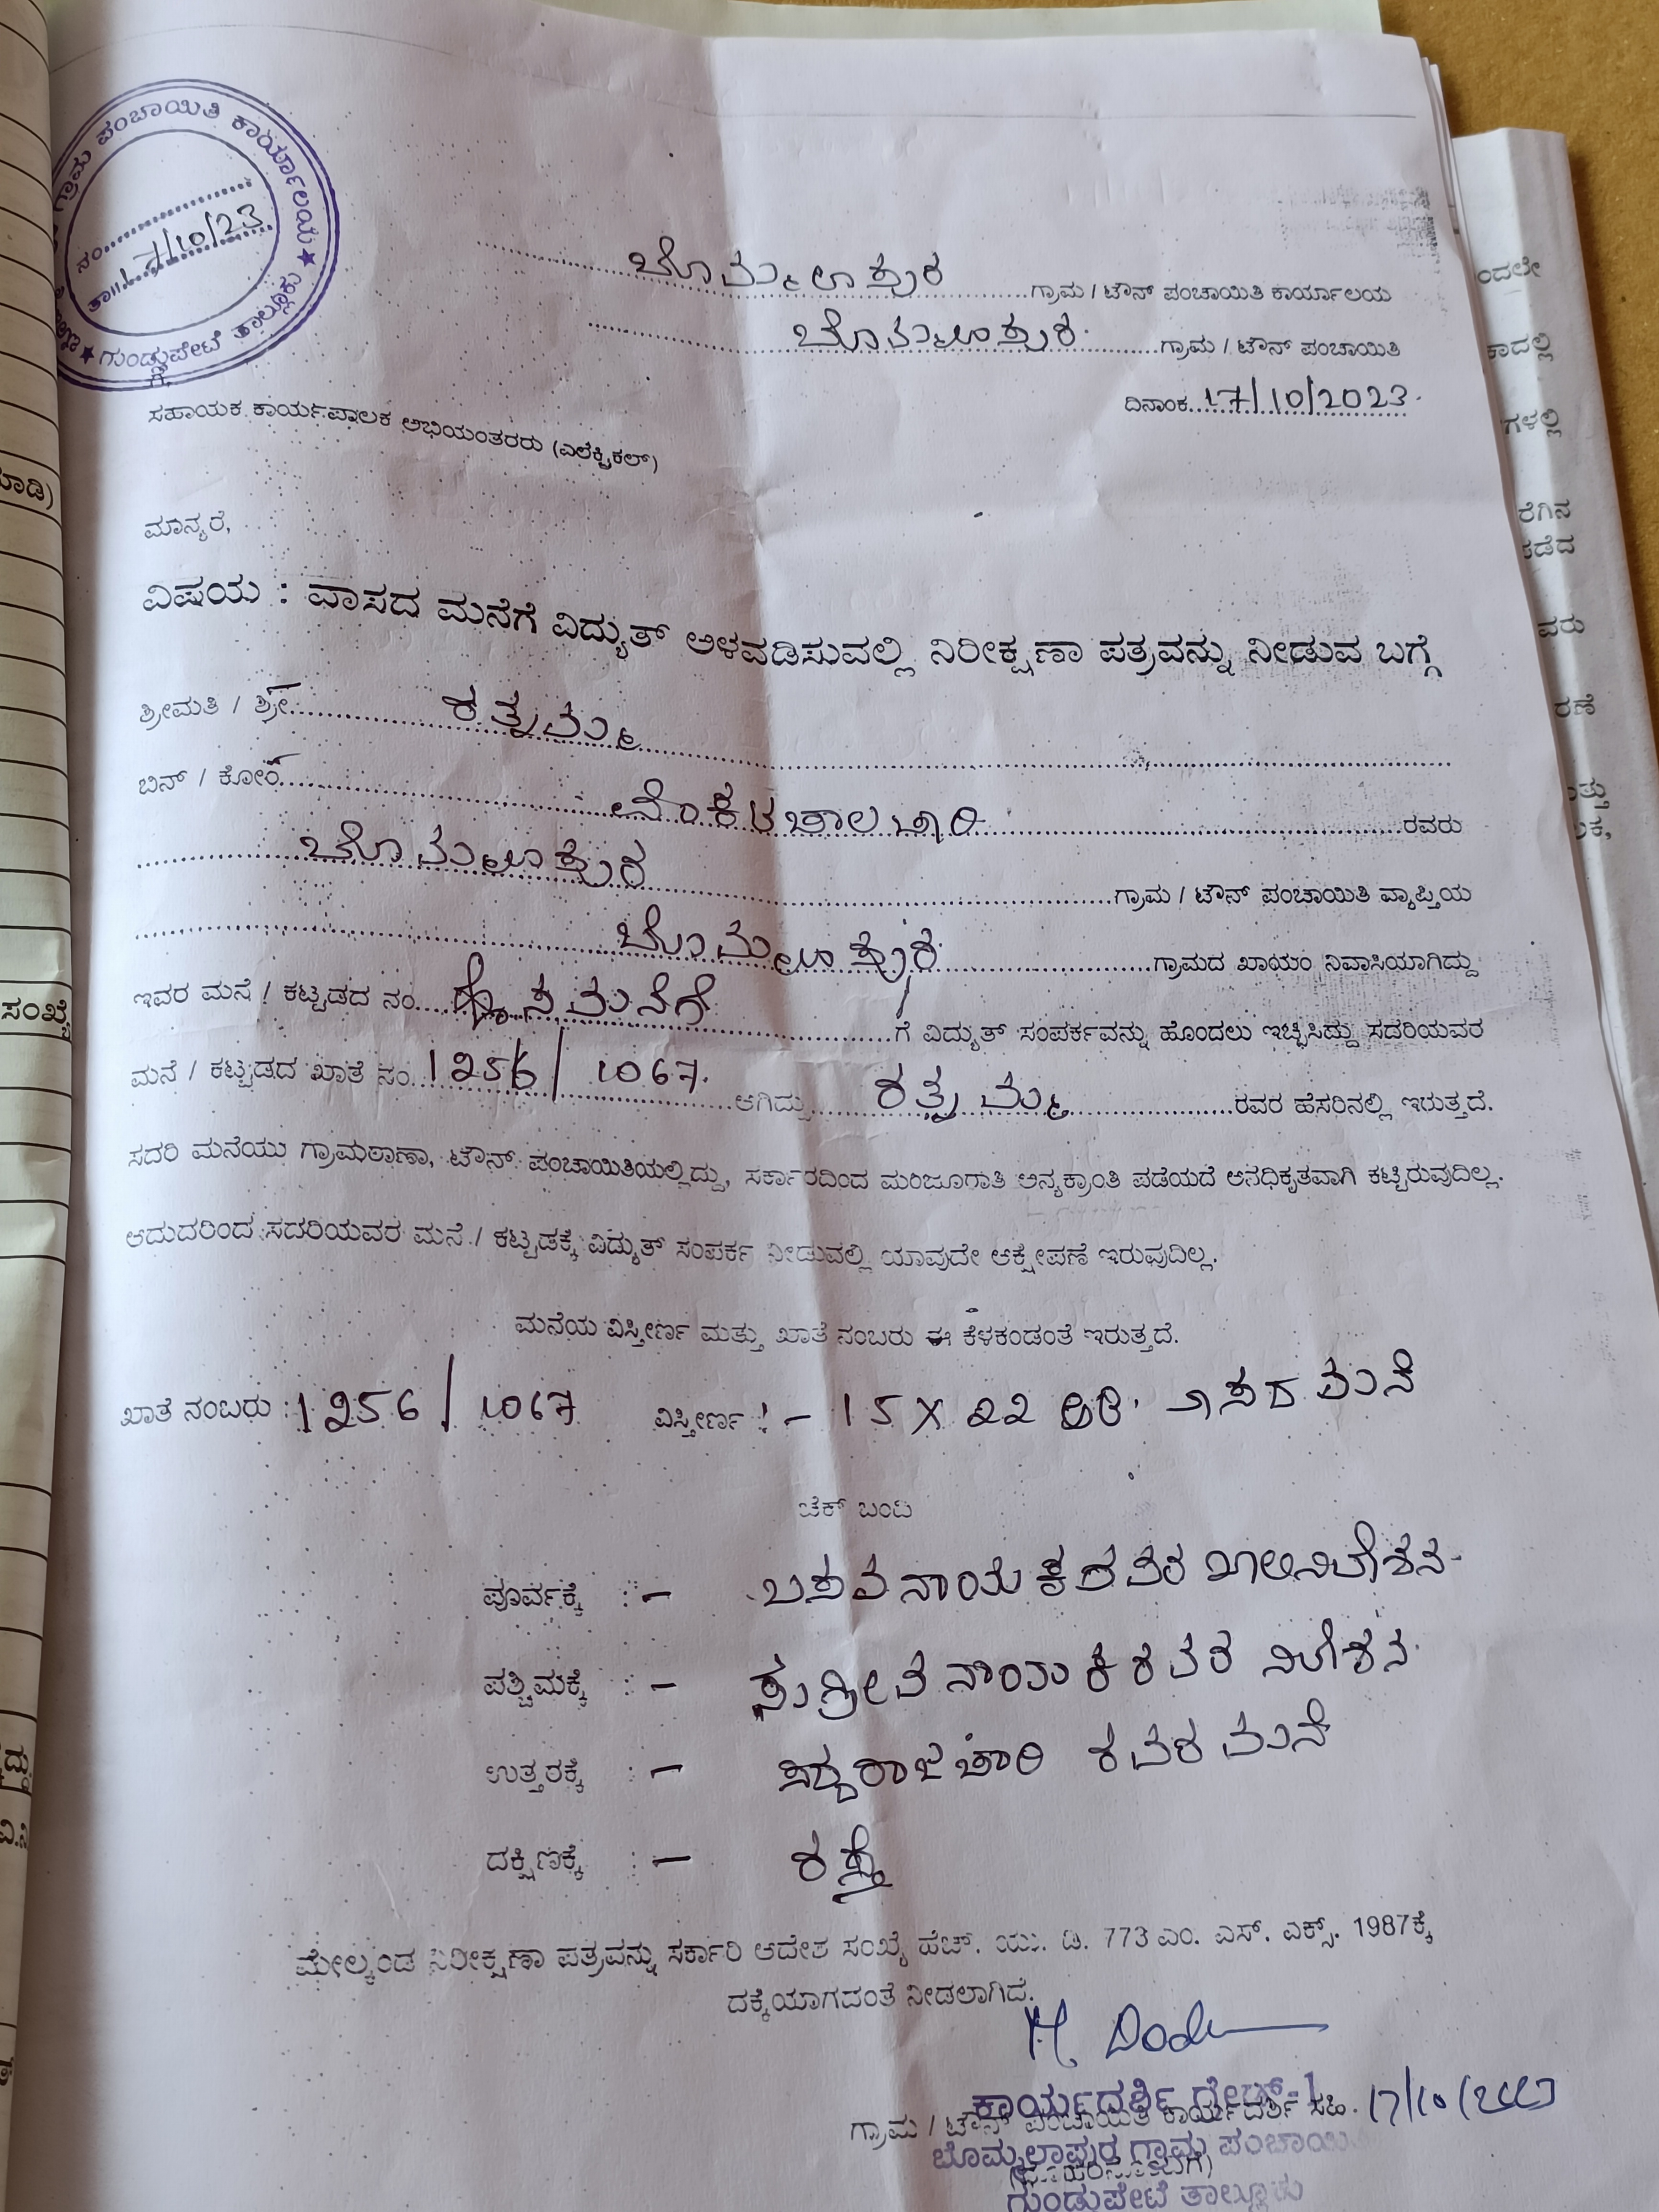 ಗ್ರಾಮ ಪಂಚಾಯಿತಿ ಕಾರ್ಯಾಲಯ ★
ನಂ..............
ತಾ॥ 17/10/23
★ ಗುಂಡ್ಲುಪೇಟೆ ತಾಲ್ಲೂಕು
ಬೊಮ್ಮಲಾಪುರ ಗ್ರಾಮ / ಟೌನ್ ಪಂಚಾಯಿತಿ ಕಾರ್ಯಾಲಯ
ಬೊಮ್ಮಲಾಪುರ ಗ್ರಾಮ / ಟೌನ್ ಪಂಚಾಯಿತಿ
ದಿನಾಂಕ 17/10/2023
ಸಹಾಯಕ ಕಾರ್ಯಪಾಲಕ ಅಭಿಯಂತರರು (ಎಲೆಕ್ಟ್ರಿಕಲ್)
ಮಾನ್ಯರೆ,
ವಿಷಯ : ವಾಸದ ಮನೆಗೆ ವಿದ್ಯುತ್ ಅಳವಡಿಸುವಲ್ಲಿ ನಿರೀಕ್ಷಣಾ ಪತ್ರವನ್ನು ನೀಡುವ ಬಗ್ಗೆ
ಶ್ರೀಮತಿ / ಶ್ರೀ ರತ್ನಮ್ಮ
ಬಿನ್ / ಕೋಂ ವೆಂಕಟಚಾಲಚಾರಿ ರವರು
ಬೊಮ್ಮಲಾಪುರ ಗ್ರಾಮ / ಟೌನ್ ಪಂಚಾಯಿತಿ ವ್ಯಾಪ್ತಿಯ
ಬೊಮ್ಮಲಾಪುರ ಗ್ರಾಮದ ಖಾಯಂ ನಿವಾಸಿಯಾಗಿದ್ದು
ಇವರ ಮನೆ / ಕಟ್ಟಡದ ನಂ. ಹೊಸಮನೆಗೆ ಗೆ ವಿದ್ಯುತ್ ಸಂಪರ್ಕವನ್ನು ಹೊಂದಲು ಇಚ್ಛಿಸಿದ್ದು ಸದರಿಯವರ
ಮನೆ / ಕಟ್ಟಡದ ಖಾತೆ ನಂ. 1256/1067. ಆಗಿದ್ದು ರತ್ನಮ್ಮ ರವರ ಹೆಸರಿನಲ್ಲಿ ಇರುತ್ತದೆ.
ಸದರಿ ಮನೆಯು ಗ್ರಾಮಠಾಣಾ, ಟೌನ್ ಪಂಚಾಯಿತಿಯಲ್ಲಿದ್ದು, ಸರ್ಕಾರದಿಂದ ಮಂಜೂರಾತಿ ಅನ್ಯಕ್ರಾಂತಿ ಪಡೆಯದೆ ಅನಧಿಕೃತವಾಗಿ ಕಟ್ಟಿರುವುದಿಲ್ಲ.
ಆದುದರಿಂದ ಸದರಿಯವರ ಮನೆ / ಕಟ್ಟಡಕ್ಕೆ ವಿದ್ಯುತ್ ಸಂಪರ್ಕ ನೀಡುವಲ್ಲಿ ಯಾವುದೇ ಆಕ್ಷೇಪಣೆ ಇರುವುದಿಲ್ಲ.
ಮನೆಯ ವಿಸ್ತೀರ್ಣ ಮತ್ತು ಖಾತೆ ನಂಬರು ಈ ಕೆಳಕಂಡಂತೆ ಇರುತ್ತದೆ.
ಖಾತೆ ನಂಬರು : 1256/1067 ವಿಸ್ತೀರ್ಣ : - 15 X 22 ಅಡಿ. ವಾಸದ ಮನೆ
ಚೆಕ್ ಬಂದಿ
ಪೂರ್ವಕ್ಕೆ : - ಬಸವನಾಯಕರವರ ಖಾಲಿನಿವೇಶನ
ಪಶ್ಚಿಮಕ್ಕೆ : - ಸುಗ್ರೀವನಾಯಕರವರ ನಿವೇಶನ
ಉತ್ತರಕ್ಕೆ : - ಸಿದ್ದರಾಜಚಾರಿ ರವರ ಮನೆ
ದಕ್ಷಿಣಕ್ಕೆ : - ರಸ್ತೆ
ಮೇಲ್ಕಂಡ ನಿರೀಕ್ಷಣಾ ಪತ್ರವನ್ನು ಸರ್ಕಾರಿ ಆದೇಶ ಸಂಖ್ಯೆ ಹೆಚ್. ಯು. ಡಿ. 773 ಎಂ. ಎಸ್. ಎಕ್ಸ್. 1987ಕ್ಕೆ
ದಕ್ಕೆಯಾಗದಂತೆ ನೀಡಲಾಗಿದೆ.
ಕಾರ್ಯದರ್ಶಿ ಗ್ರೇಡ್-1
ಗ್ರಾಮ / ಟೌನ್ ಪಂಚಾಯಿತಿ ಕಾರ್ಯದರ್ಶಿ ಸಹಿ. 17/10/2023
ಬೊಮ್ಮಲಾಪುರ ಗ್ರಾಮ ಪಂಚಾಯಿತಿ
ಗುಂಡ್ಲುಪೇಟೆ ತಾಲ್ಲೂಕು